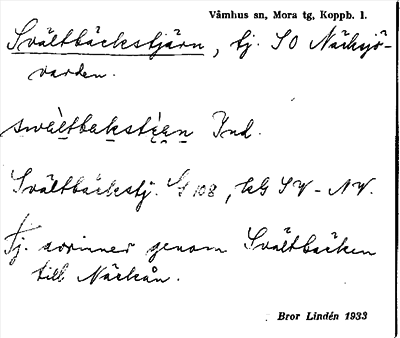 Våmhus sn, Mora tg, Koppb. l.
Svältbäckstjärn, tj. SO Näcksjö-
varden.
swàltbakstiæn Ind.
Svältbäckstj. 108, kG SV - NV.
Tj. avrinner genom Svältbäcken
till Näckån.
Bror Lindén 1933